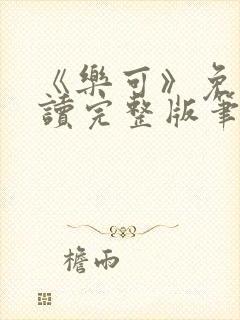 《樂可》免
讀完整版筆
檐雨